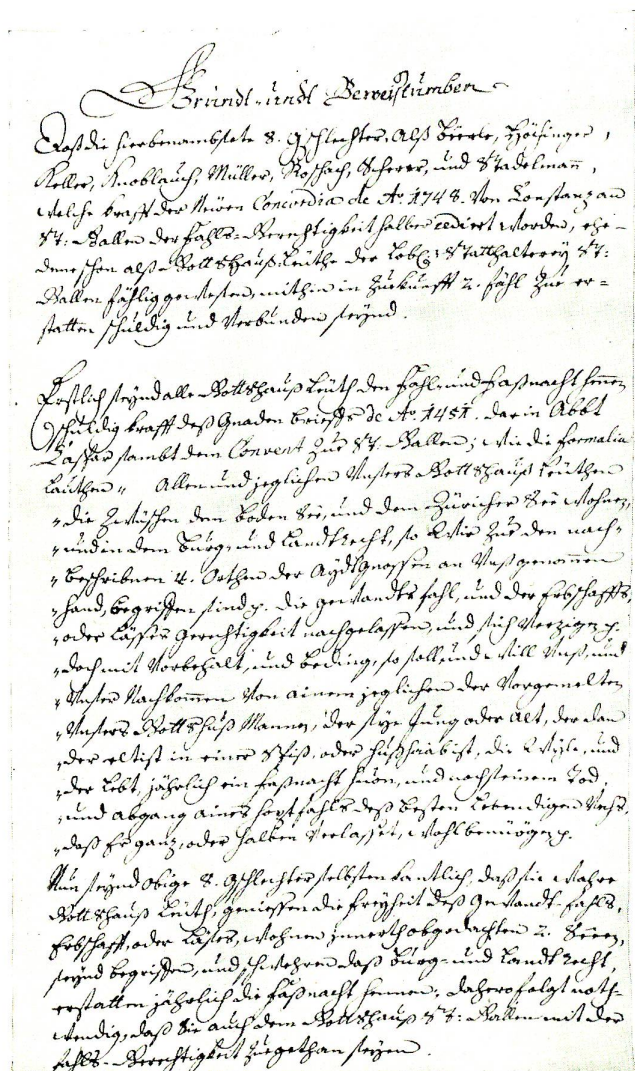 Grundt- undt Beweistumben
Daß die hierbenambstete 8. Gschlechter, Alß Bierle, Högsinger,
Keller, Knoblauch, Müller, Roschach, Scherer, und Stadelmann,
welche krafft der Neüen Concordia de Aō. 1748. Von Constanz an
St: Gallen der Fahls-Gerechtigkeit halber cediert worden, ehe-
deme schon alß Gottshauß-Leüthe der Lobl: Statthalterey St:
Gallen fählig gewesen, mithin in Zuekunfft 2. Fähl zue er=
statten schuldig und Verbunden seynd.
Erstlich seynd alle Gottshauß Leüth den Fahl und Faßnacht hennen
schuldig krafft deß Gnaden brieffs de Aō. 1451. darin Abbt
Caspar sambt dem Convent zue St. Gallen; wie die formalia
Lauthen „ Allen und jeglichen Unsers Gottshauß Leüthen
„ die Zwüschen dem Boden See, und dem Züricher See wohnen,
„ und in dem burg- und Landtrecht, so Wir zue den nach-
„ beschribnen 4. Orthen der Aydtgnossen an Unß genommen
„ hand, begriffen sind p. die gewandts fahl, und der Erbschaffts,
„ oder Lässes gerechtigkeit nachgelassen, und sich Verzigen p.
„ doch mit Vorbehalt, und beding, so soll und will Unß, und
„ Unser Nachkommen Von ainem jeglichen der Vorgemelten
„ Unsers Gottshuß Mannen, der seye Jung oder Alt, der dan
„ der eltist in einer Spiß, oder hußhab ist, die Wyle, und
„ der lebt, jährlich ein faßnacht huon, und nach seinem Tod,
„ und abgang aines hoptfahls deß besten Lebendigen Vechs,
„ daß Er ganz, oder halben verlasset, wohl benüögen p.
Nun seynd obige 8. Gschlechter selbsten kantlich, daß sie wahre
Gottshauß Leüth, geniessen die freyheit deß Gewandt-fahls,
Erbschafft, oder Läses, wohnen innerth obgedachten 2. Seeen,
seynd begriffen, und schwehren daß Burg- und Landtrecht,
erstatten jährlich die Faßnacht hennen; dahero folgt noth-
wendig, daß Sie auch dem Gottshauß St: Gallen mit der
fahls-Gerechtigkeit zuegethan seyen.